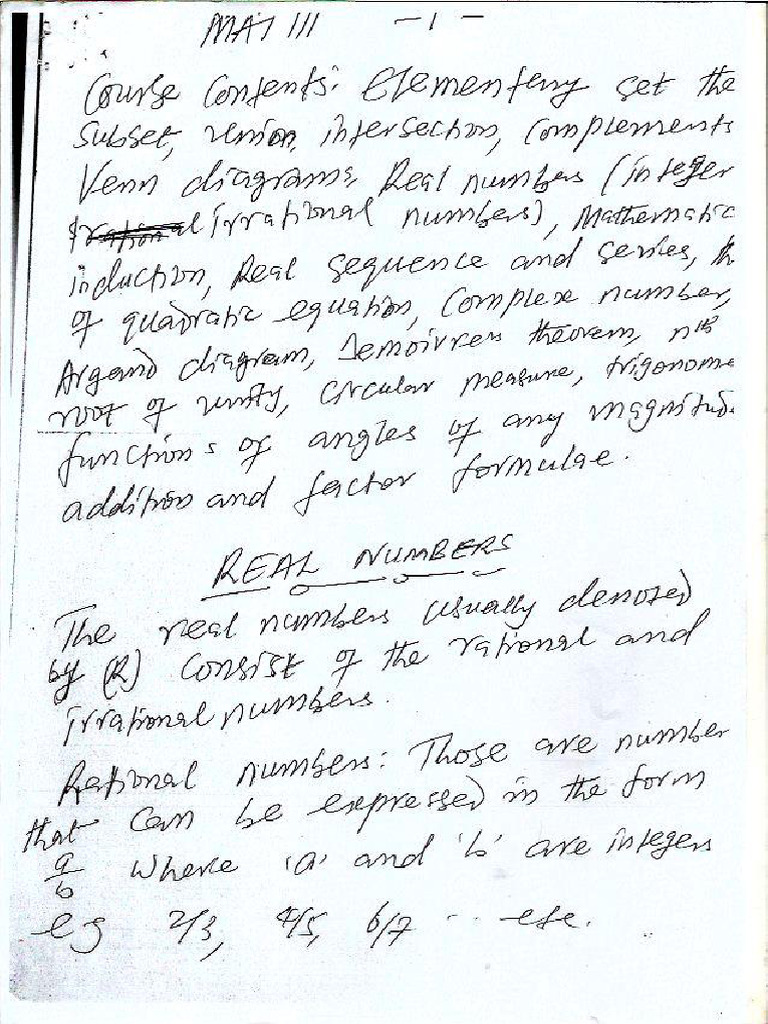 MAT 111 - 1 -
Course Contents: Elementary set the
subset, union, intersection, Complements
Venn diagrams, Real numbers (integer
irrational numbers), Mathematic
induction, Real sequence and series, th
of quadratic equation, Complex number,
Argand diagram, Demoivres theorem, nth
root of unity, circular measure, trigonome
functions of angles of any magnitud
addition and factor formulae.
REAL NUMBERS
The real numbers usually denoted
by (R) consist of the rational and
irrational numbers.
Rational numbers: Those are number
that can be expressed in the form
a/b where 'a' and 'b' are integers
eg 2/3, 4/5, 6/7 ... etc.